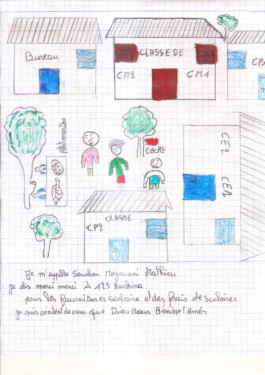 Bureau
CLASSE DE
CM2
CM1
CP
CE2
CE1
CLASSE
CP2
Je m'appelle Sawadogo Mathieu
je dis merci merci à 123 Burkina
pour les fournitures scolaire et des frais de scolaires
je suis content de vous que Dieu vous Bénisse! Amen